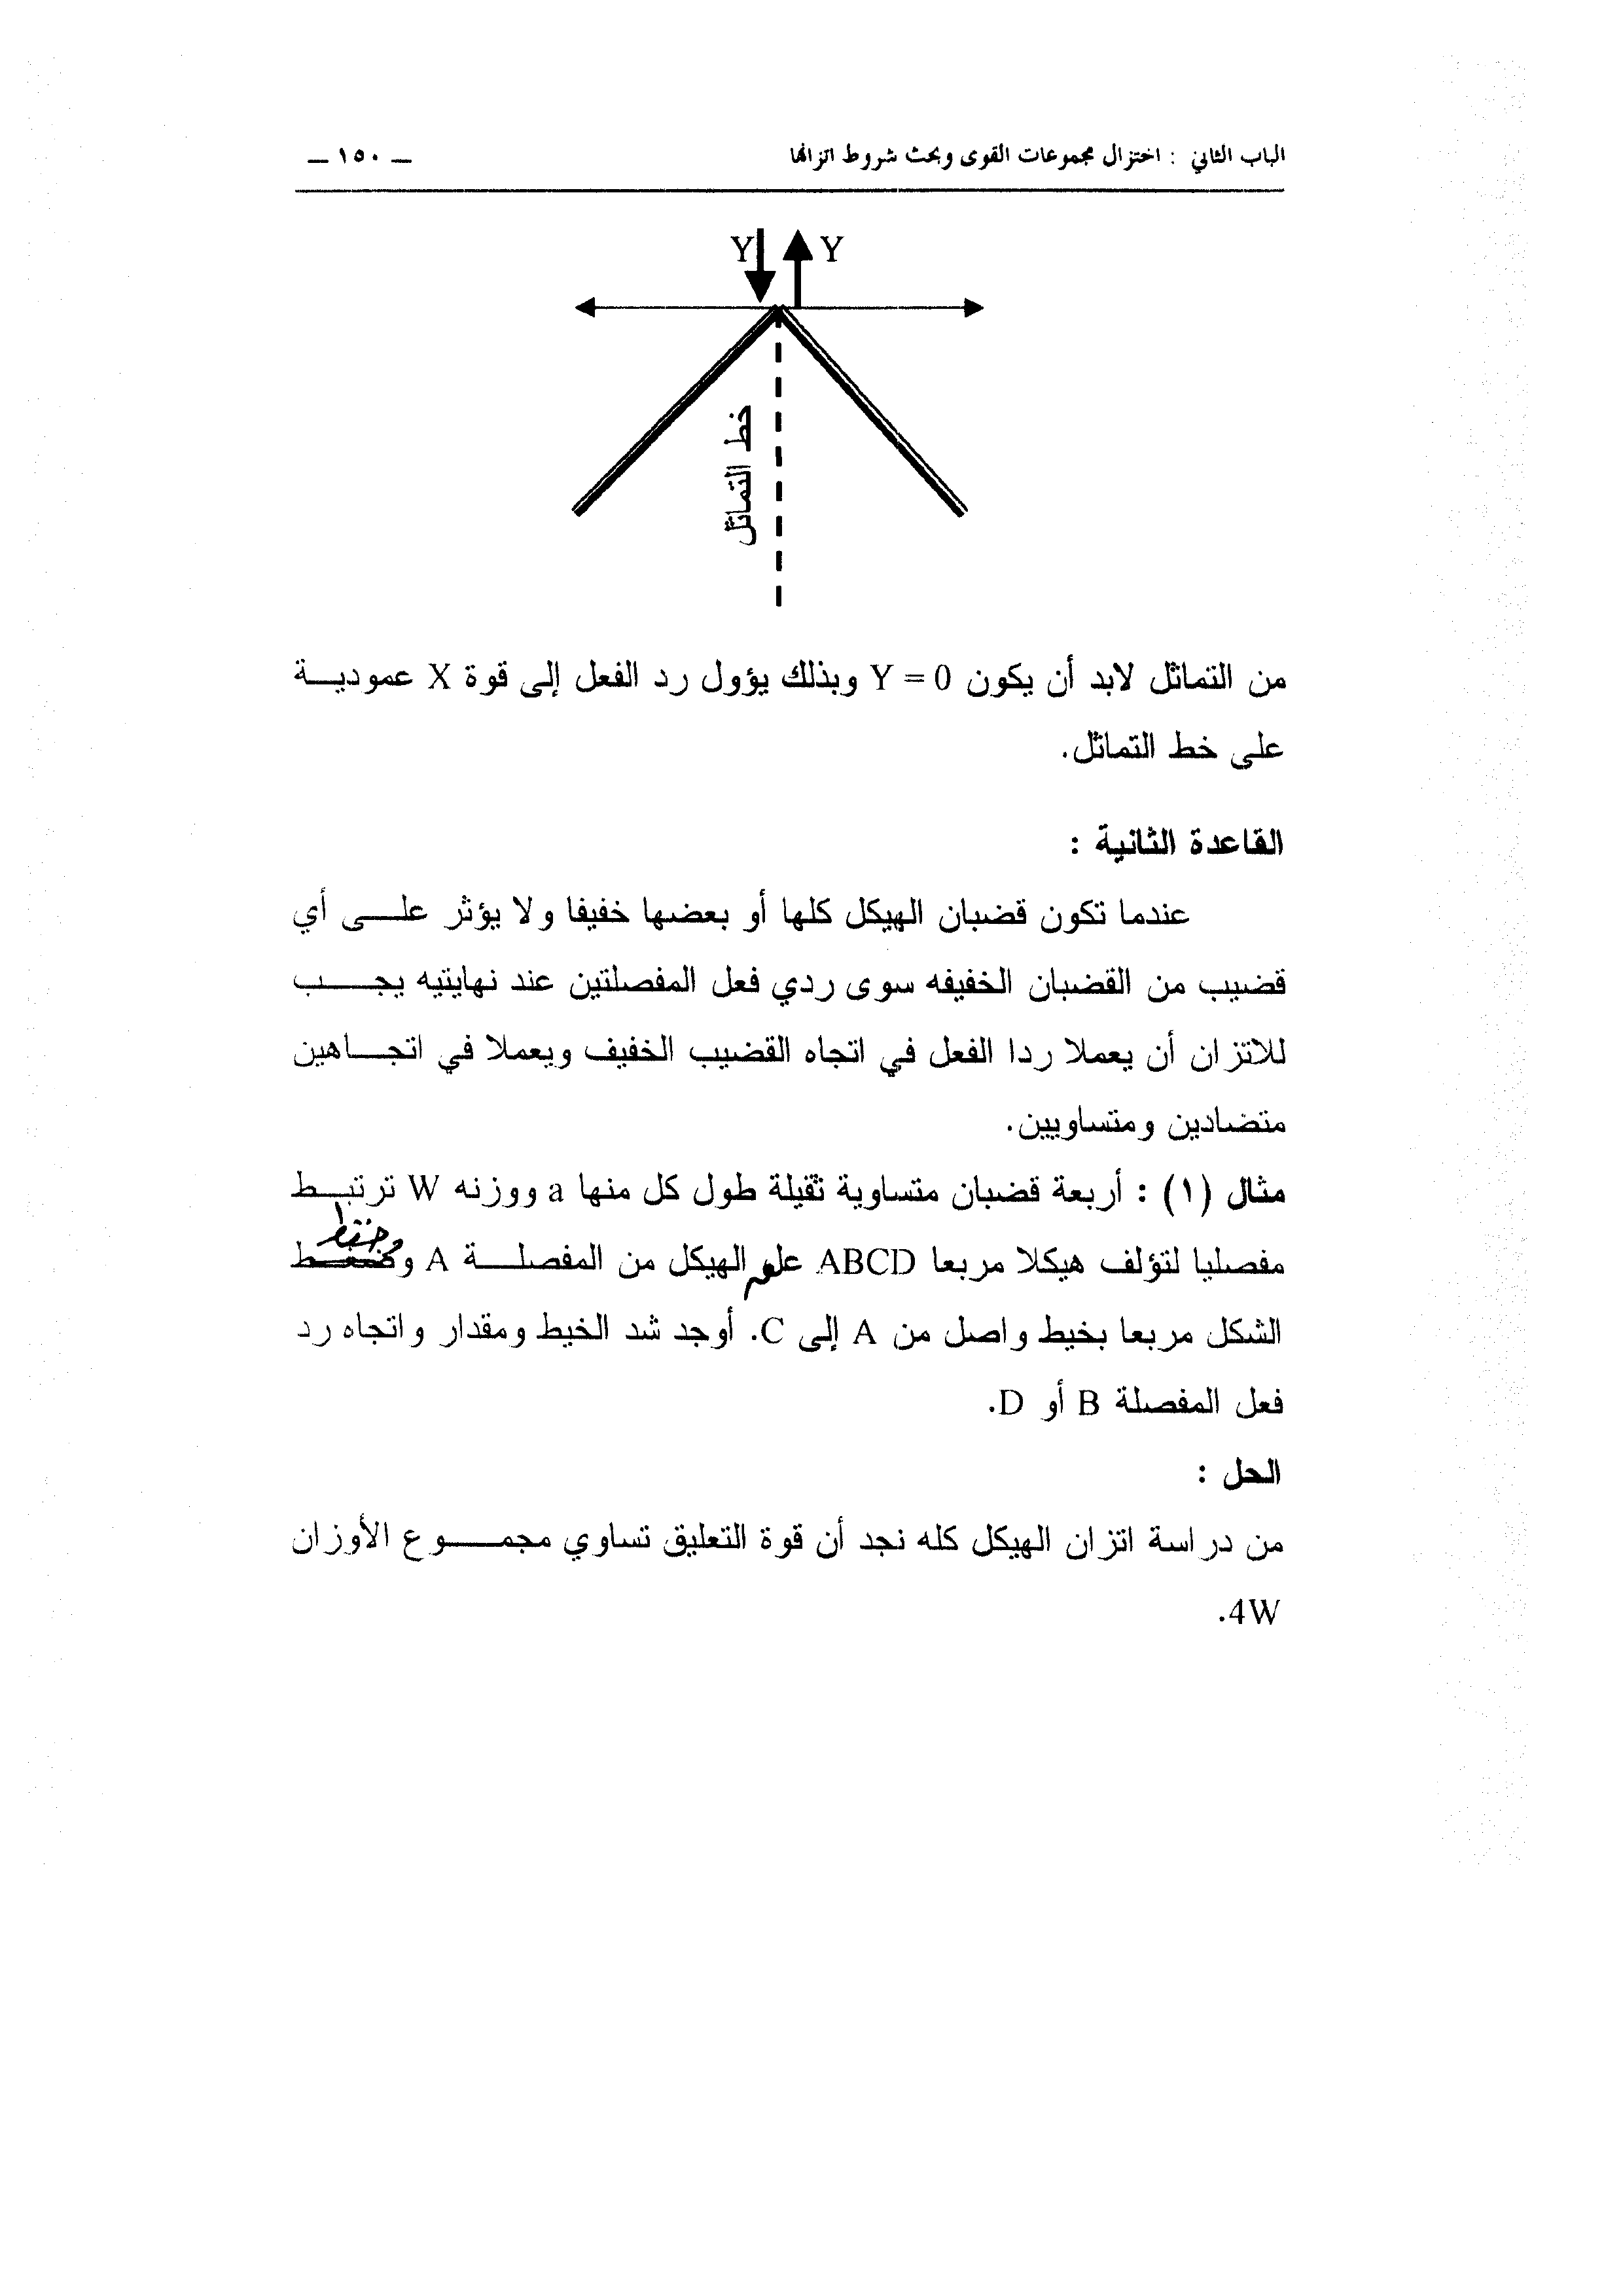 الباب الثاني : اختزال مجموعات القوى وبحث شروط اتزانها – ١٥٠ –
Y Y
خط التماثل
من التماثل لابد أن يكون Y = 0 وبذلك يؤول رد الفعل إلى قوة X عمودية
على خط التماثل.
القاعدة الثانية :
عندما تكون قضبان الهيكل كلها أو بعضها خفيفا ولا يؤثر على أي
قضيب من القضبان الخفيفه سوى ردي فعل المفصلتين عند نهايتيه يجب
للاتزان أن يعملا ردا الفعل في اتجاه القضيب الخفيف ويعملا في اتجاهين
متضادين ومتساويين.
مثال (١) : أربعة قضبان متساوية ثقيلة طول كل منها a ووزنه W ترتبط
مفصليا لتؤلف هيكلا مربعا ABCD علق الهيكل من المفصلة A وحفظ
الشكل مربعا بخيط واصل من A إلى C. أوجد شد الخيط ومقدار واتجاه رد
فعل المفصلة B أو D.
الحل :
من دراسة اتزان الهيكل كله نجد أن قوة التعليق تساوي مجموع الأوزان
4W.